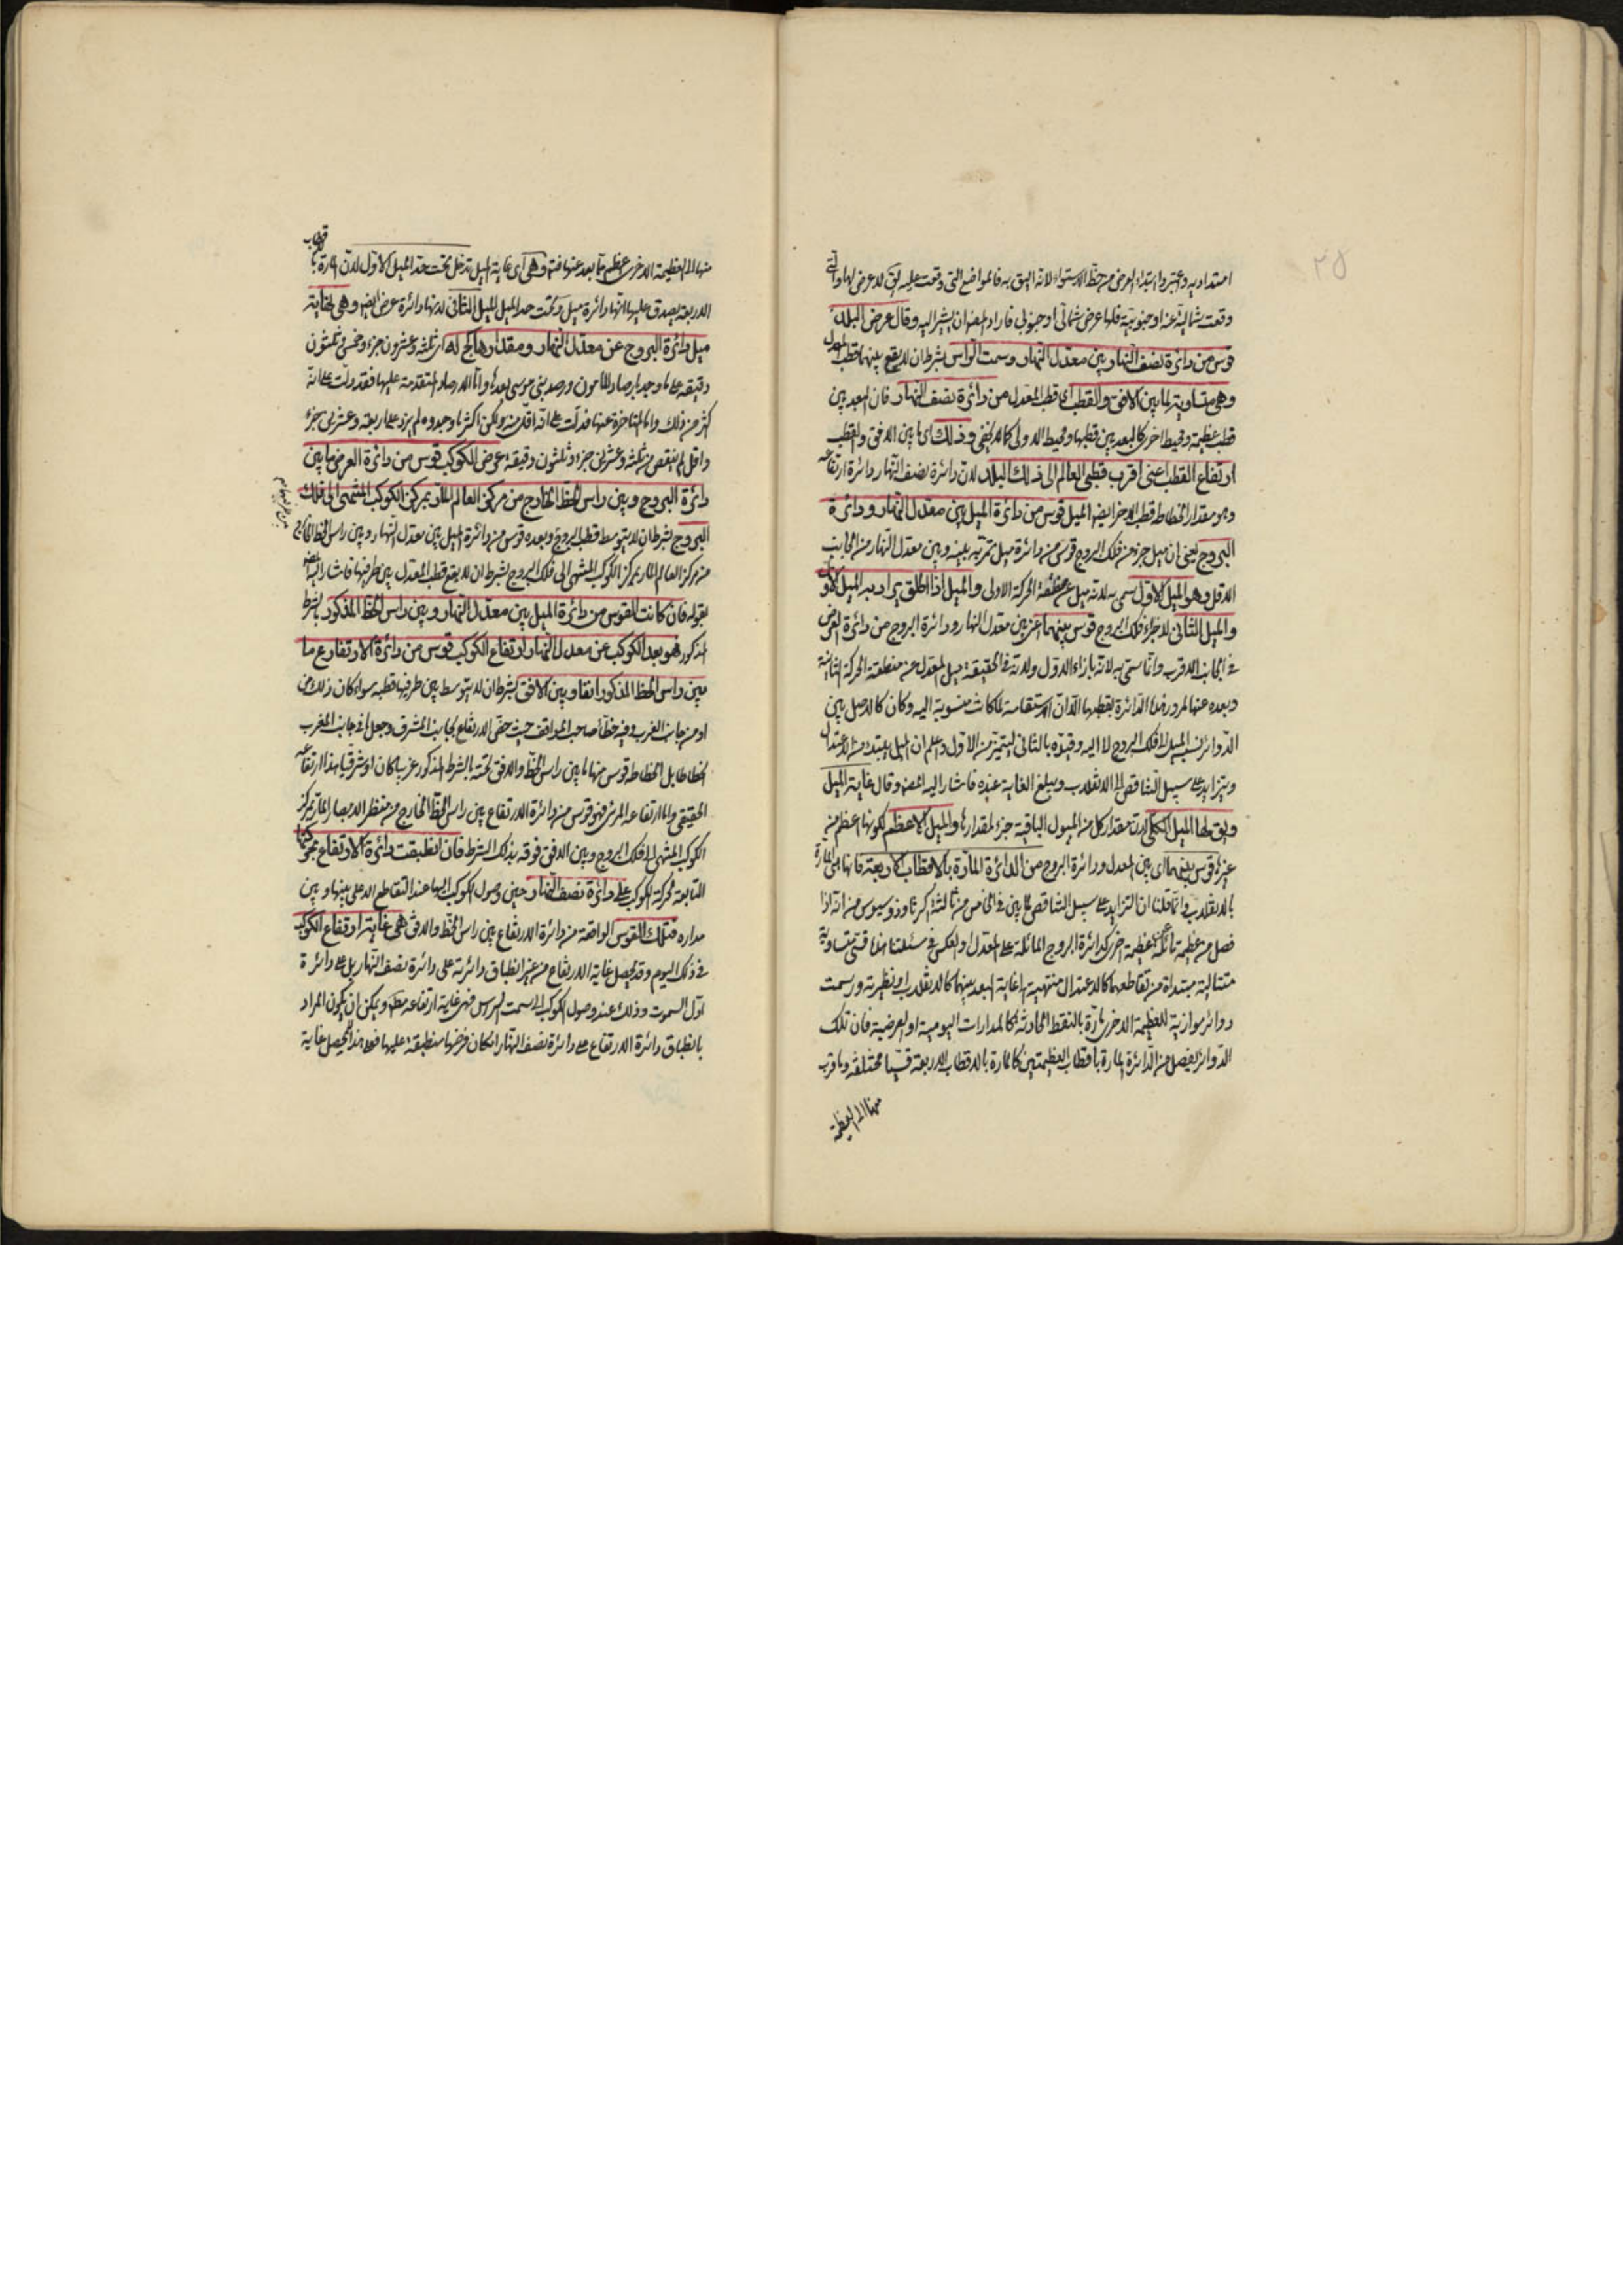 ٢٥
امتدادیه واعتبروا ابتداء العرض من خط الاستواء لانه الیق به فالمواضع التی وقعت علیه یق لا عرض لها والتی
وقعت شمالیة عنه او جنوبیة فلها عرض شمالی او جنوبی فاراد المص ان یشیر الیه وقال عرض البلد
قوس من دائرة نصف النهار بین معدل النهار وسمت الراس بشرط ان لا یقع بینهما قطب المعدل
وهی متساویة لما بین الافق والقطب ای قطب المعدل من دائرة نصف النهار فان البعد بین
قطب عظیمة ومحیط اخری کالبعد بین قطبها ومحیط الاولی کما لا یخفی وذلک ای ما بین الافق والقطب
ارتفاع القطب اعنی اقرب قطبی العالم الی ذلک البلد لان دائرة نصف النهار دائرة ارتفاعه
وهو مقدار انحطاط قطب الاخر ایضا المیل قوس من دائرة المیل بین معدل النهار ودائرة
البروج یعنی ان میل جزء من فلک البروج قوس من دائرة میل تمر به بینه وبین معدل النهار من الجانب
الاقل وهو المیل الاول سمی به لانه میل عن منطقة الحرکة الاولی والمیل اذا اطلق یراد به المیل الاول
والمیل الثانی لاجزاء فلک البروج قوس بینهما اعنی بین معدل النهار ودائرة البروج من دائرة العرض
فی الجانب الاقرب وانما سمی به لانه بازاء الاول ولانه فی الحقیقة میل المعدل عن منطقة الحرکة الثانیة
وبعده عنها لمرور هذا الدائرة بقطبیها الا ان الاستقامة لما کانت منسوبة الیه وکان کالاصل بین
الدوائر نسب المیل الی فلک البروج لا الیه وقیدوه بالثانی لیتمیز من الاول واعلم ان المیل یبتدء من الاعتدال
ویتزاید علی سبیل التناقص الی الانقلاب ویبلغ الغایة عنده فاشار الیه المص وقال غایة المیل
ویق لها المیل الکلی لان مقدار کل من المیول الباقیة جزء لمقدارها والمیل الاعظم لکونها اعظم من
غیره قوس بینهما ای بین المعدل ودائرة البروج من الدائرة المارة بالاقطاب الاربعة فانها هی المارة
بالانقلابین وانما قلنا ان التزاید علی سبیل التناقص لما بین فی الخامس من ثالثة اکر ثاوذوسیوس من انه اذا
فصل من عظیمة مائلة عن عظیمة اخری کدائرة البروج المائلة علی المعدل او بالعکس فی مسئلتنا هذا قسی متساویة
متتالیة مبتداة من تقاطعهما کالاعتدال منتهیة الی غایة البعد بینهما کالانقلاب او نظیرته ورسمت
دوائر موازیة للعظیمة الاخری مارة بالنقط الحادثة کالمدارات الیومیة او العرضیة فان تلک
الدوائر یفصل من الدائرة المارة باقطاب العظیمتین کالمارة بالاقطاب الاربعة قسیا مختلفة وما قرب
منها الی العظیمة
منها الی العظیمة الاخری اعظم مما بعد عنها فتم وهی ای غایة المیل تدخل تحت حد المیل الاول لان المارة بالاقطاب
الاربعة یصدق علیها انها دائرة میل وتحت حد المیل الثانی لانها دائرة عرض ایضا وهی لغایة
میل دائرة البروج عن معدل النهار ومقدارها کج له ای ثلثة وعشرون جزء وخمس وثلثون
دقیقة علی ما وجد بارصاد المامون ورصد بنی موسی بعده واما الارصاد المتقدمة علیها فقد دلت علی انه
اکثر من ذلک واما المتاخرة عنها فدلت علی انه اقل منه ولکن اکثر ما وجدوه لم یزد علی اربعة وعشرین جزء
واقل لم ینقص من ثلثة وعشرین جزء وثلثون دقیقة عرض الکوکب قوس من دائرة العرض ما بین
دائرة البروج وبین راس الخط الخارج من مرکز العالم المار بمرکز الکوکب المنتهی الی فلک
البروج بشرط ان لا یتوسط قطب البروج وبعده قوس من دائرة المیل بین معدل النهار وبین راس الخط الخارج
من مرکز العالم المار بمرکز الکوکب المنتهی الی فلک البروج بشرط ان لا یقع قطب المعدل بین طرفیها فاشار الیه المص
بقوله فان کانت القوس من دائرة المیل بین معدل النهار وبین راس الخط المذکور بالشرط
المذکور فهو بعد الکوکب عن معدل النهار ارتفاع الکوکب قوس من دائرة الارتفاع ما
بین راس الخط المذکور انفا وبین الافق بشرط ان لا یتوسط بین طرفیها قطبه سواء کان ذلک من
او من جانب الغرب وفیه خطأ صاحب المواقف حیث خص الارتفاع بجانب المشرق وجعل ما فی جانب المغرب
انحطاطا بل انحطاطه قوس منها ما بین راس الخط والافق تحته بالشرط المذکور غربیا کان او شرقیا هذا ارتفاعه
الحقیقی واما ارتفاعه المرئی فهو قوس من دائرة الارتفاع بین راس الخط الخارج من منظر الابصار المار بمرکز
الکوکب المنتهی الی فلک البروج وبین الافق فوقه بذلک الشرط فان انطبقت دائرة الارتفاع بحرکتها
التابعة لحرکة الکوکب علی دائرة نصف النهار حین وصول الکوکب الیها عند التقاطع الاعلی بینها وبین
مداره فتلک القوس الواقعة من دائرة الارتفاع بین راس الخط والافق هی غایة ارتفاع الکوکب
فی ذلک الیوم وقد یحصل غایة الارتفاع من غیر انطباق دائرته علی دائرة نصف النهار بل علی دائرة
اول السموت وذلک عند وصول الکوکب الی سمت الراس فهی غایة ارتفاعه مط ویمکن ان یکون المراد
بانطباق دائرة الارتفاع علی دائرة نصف النهار امکان فرضها منطبقة علیها فعلی هذا یحصل غایة